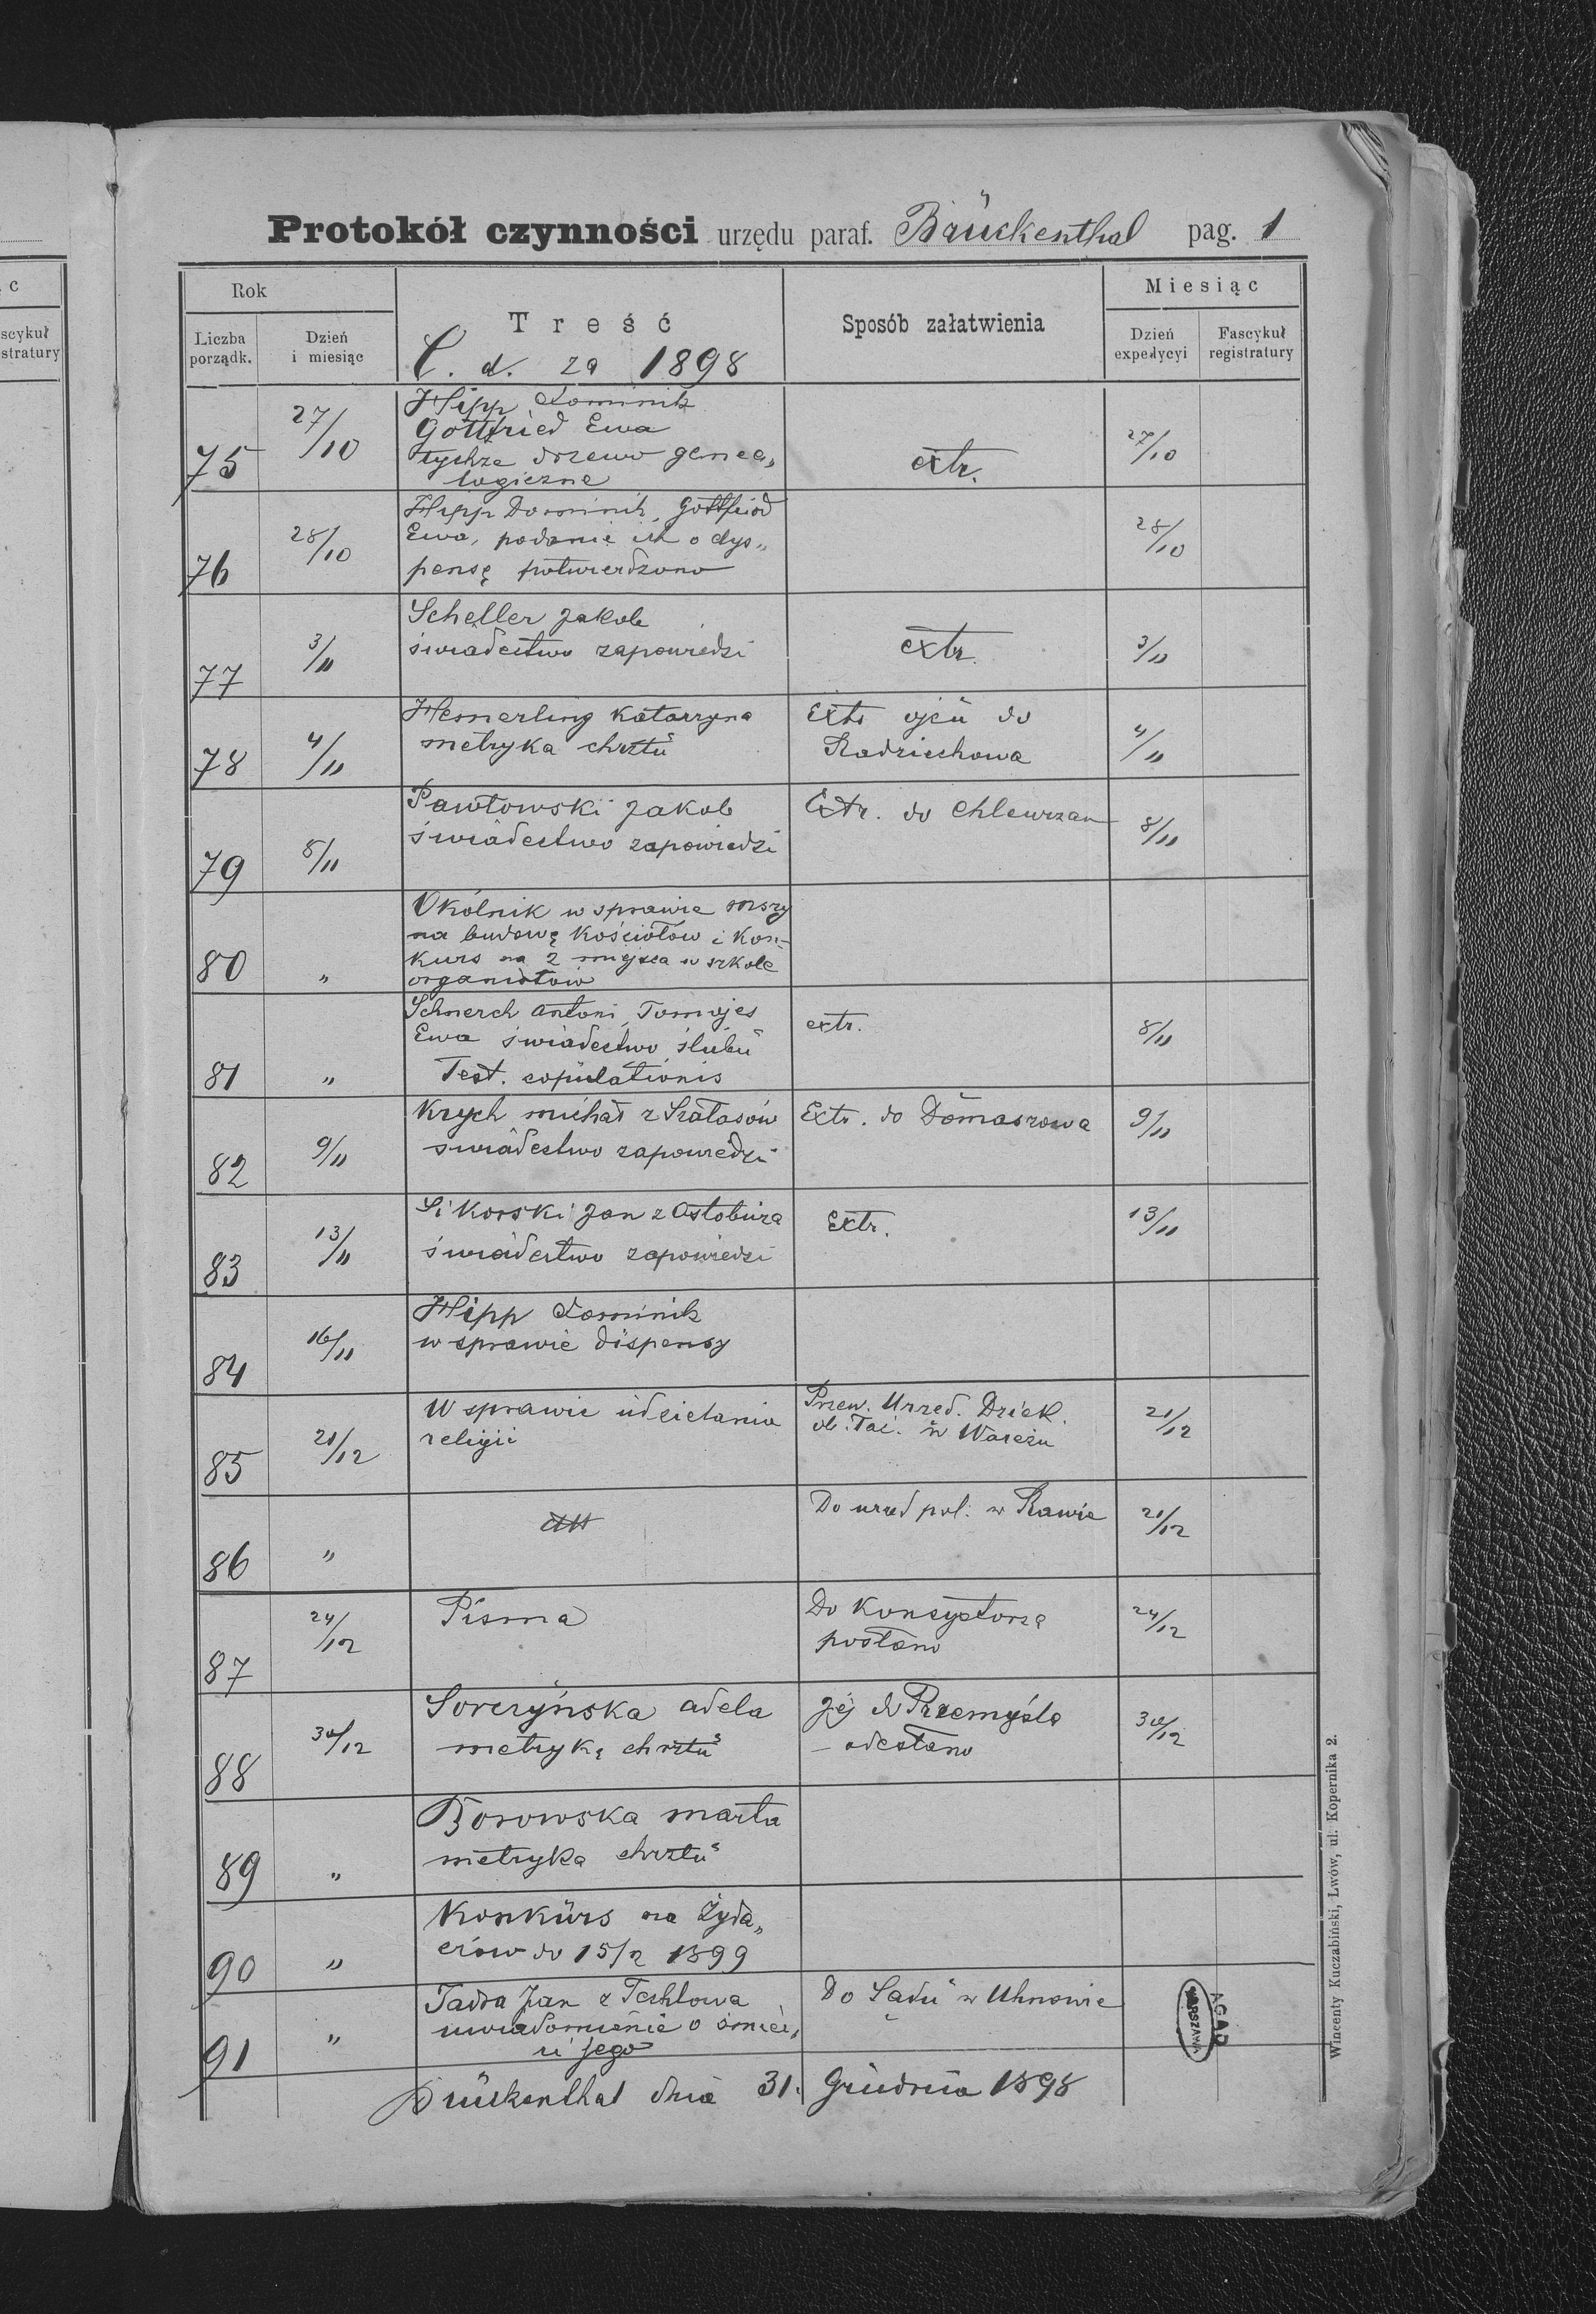 Protokół czynności urzędu paraf. Brückenthal pag. 1
Rok
Treść
Sposób załatwienia
Miesiąc
Liczba porządk.
Dzień i miesiąc
Dzień expedycyi
Fascykuł registratury
C. d. za 1898
75 27/10 Hipp Dominik
Gottfried Ewa
tychże drzewo genea„
logiczne extr. 27/10
76 28/10 Hipp Dominik, Gottfried
Ewa, podanie ich o dys„
pensę potwierdzono 28/10
77 3/11 Scheller Jakob
świadectwo zapowiedzi extr. 3/11
78 4/11 Hemerling Katarzyna Extr ojcu do
metryka chrztu Radziechowa 4/11
79 8/11 Pawłowski Jakob Extr. do Chlewczan 8/11
świadectwo zapowiedzi
80 „ Okólnik w sprawie mszy
na budowę Kościołów i Kon-
kurs na 2 miejsca w szkole
organistów
81 „ Schnerch Antoni, Tomajes extr. 8/11
Ewa świadectwo ślubu
Test. copulationis
82 9/11 Krych Michał z Szałasów Extr. do Domaszowa 9/11
świadectwo zapowiedzi
83 13/11 Sikorski Jan z Ostobuża Extr. 13/11
świadectwo zapowiedzi
84 16/11 Hipp Dominik
w sprawie dispensy
85 21/12 W sprawie udzielania Przew. Urzęd. Dziek.
religii ob. łać. w Warężu 21/12
86 „ Do urzęd pol. w Rawie 21/12
87 24/12 Pisma Do Konsystorza
posłano 24/12
88 30/12 Soreryńska Adela jej do Przemyśla
metrykę chrztu odesłano 30/12
89 „ Borowska Marta
metryka chrztu
90 „ Konkurs na Żyda„
czów do 15/2 1899
91 „ Tadra Jan z Tehlowa Do Sądu w Uhnowie
uwiadomienie o śmier„
ci jego
Brückenthal dnia 31. Grudnia 1898
A.G.A.D
WARSZAWA
Wincenty Kuczabiński, Lwów, ul. Kopernika 2.
c
scykuł
stratury